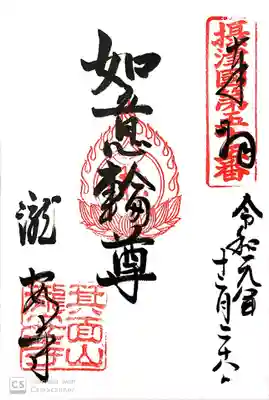 奉拝
摂津国第五 番
令和元年
月二十 日
如意輪尊
瀧安寺
箕面山
瀧安寺
CS Scanned with
CamScanner